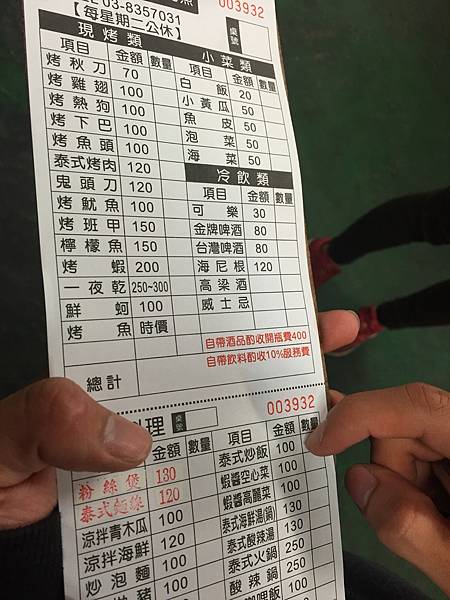 TEL 03-8357031
【每星期二公休】
桌號
003932
現烤類
項目 金額 數量
烤秋刀 70
烤雞翅 100
烤熱狗 100
烤下巴 100
烤魚頭 100
泰式烤肉 120
鬼頭刀 120
烤魷魚 100
烤班甲 150
檸檬魚 150
烤蝦 200
一夜乾 250~300
鮮蚵 100
烤魚 時價
總計
小菜類
項目 金額 數量
白飯 20
小黃瓜 50
魚皮 50
泡菜 50
海菜 50
冷飲類
項目 金額 數量
可樂 30
金牌啤酒 80
台灣啤酒 80
海尼根 120
高梁酒
威士忌
自帶酒品酌收開瓶費400
自帶飲料酌收10%服務費
理
桌號
003932
金額 數量
粉絲煲 130
泰式麵線 120
涼拌青木瓜 100
涼拌海鮮 120
炒泡麵 100
豬 100
項目 金額 數量
泰式炒飯 100
蝦醬空心菜 100
蝦醬高麗菜 100
泰式海鮮湯(鍋) 130
泰式酸辣湯 130
泰式火鍋 250
酸辣鍋 250
咖哩 100